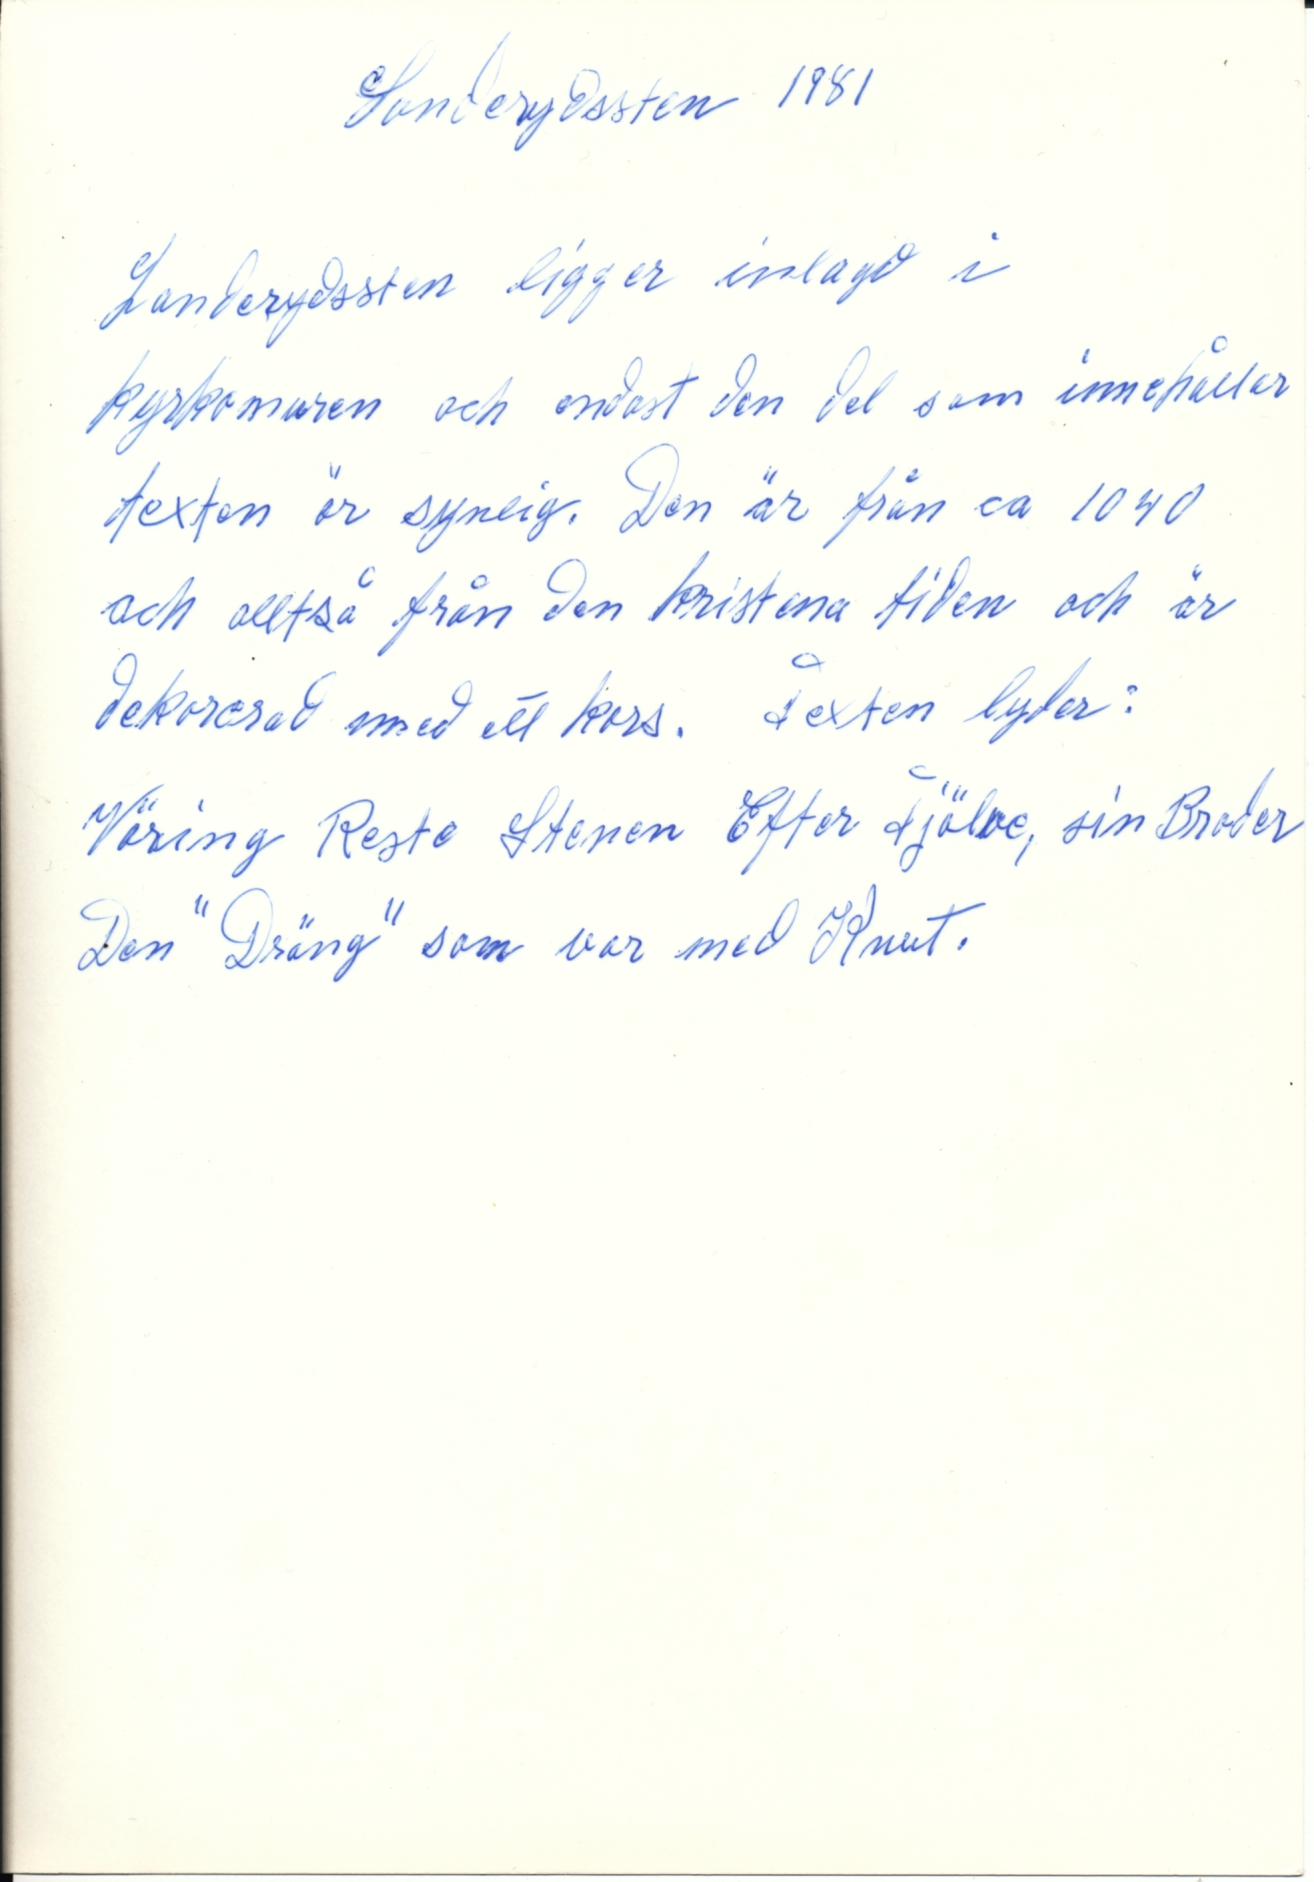 Landerydssten 1981
Landerydssten ligger inlagd i
kyrkomuren och endast den del som innehåller
texten är synlig. Den är från ca 1040
och alltså från den kristena tiden och är
dekorerad med ett kors. Texten lyder:
Väring Reste Stenen Efter Tjälve, sin Broder
Den "Dräng" som var med Knut.